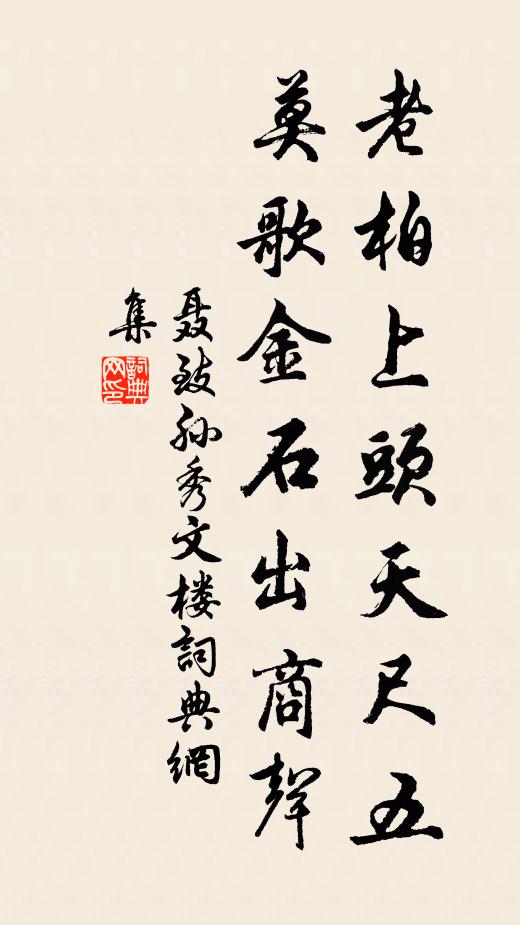 老柏上頭天尺五
莫歌金石出商聲
聂致孙秀文楼詞典網
集
詞典
网印